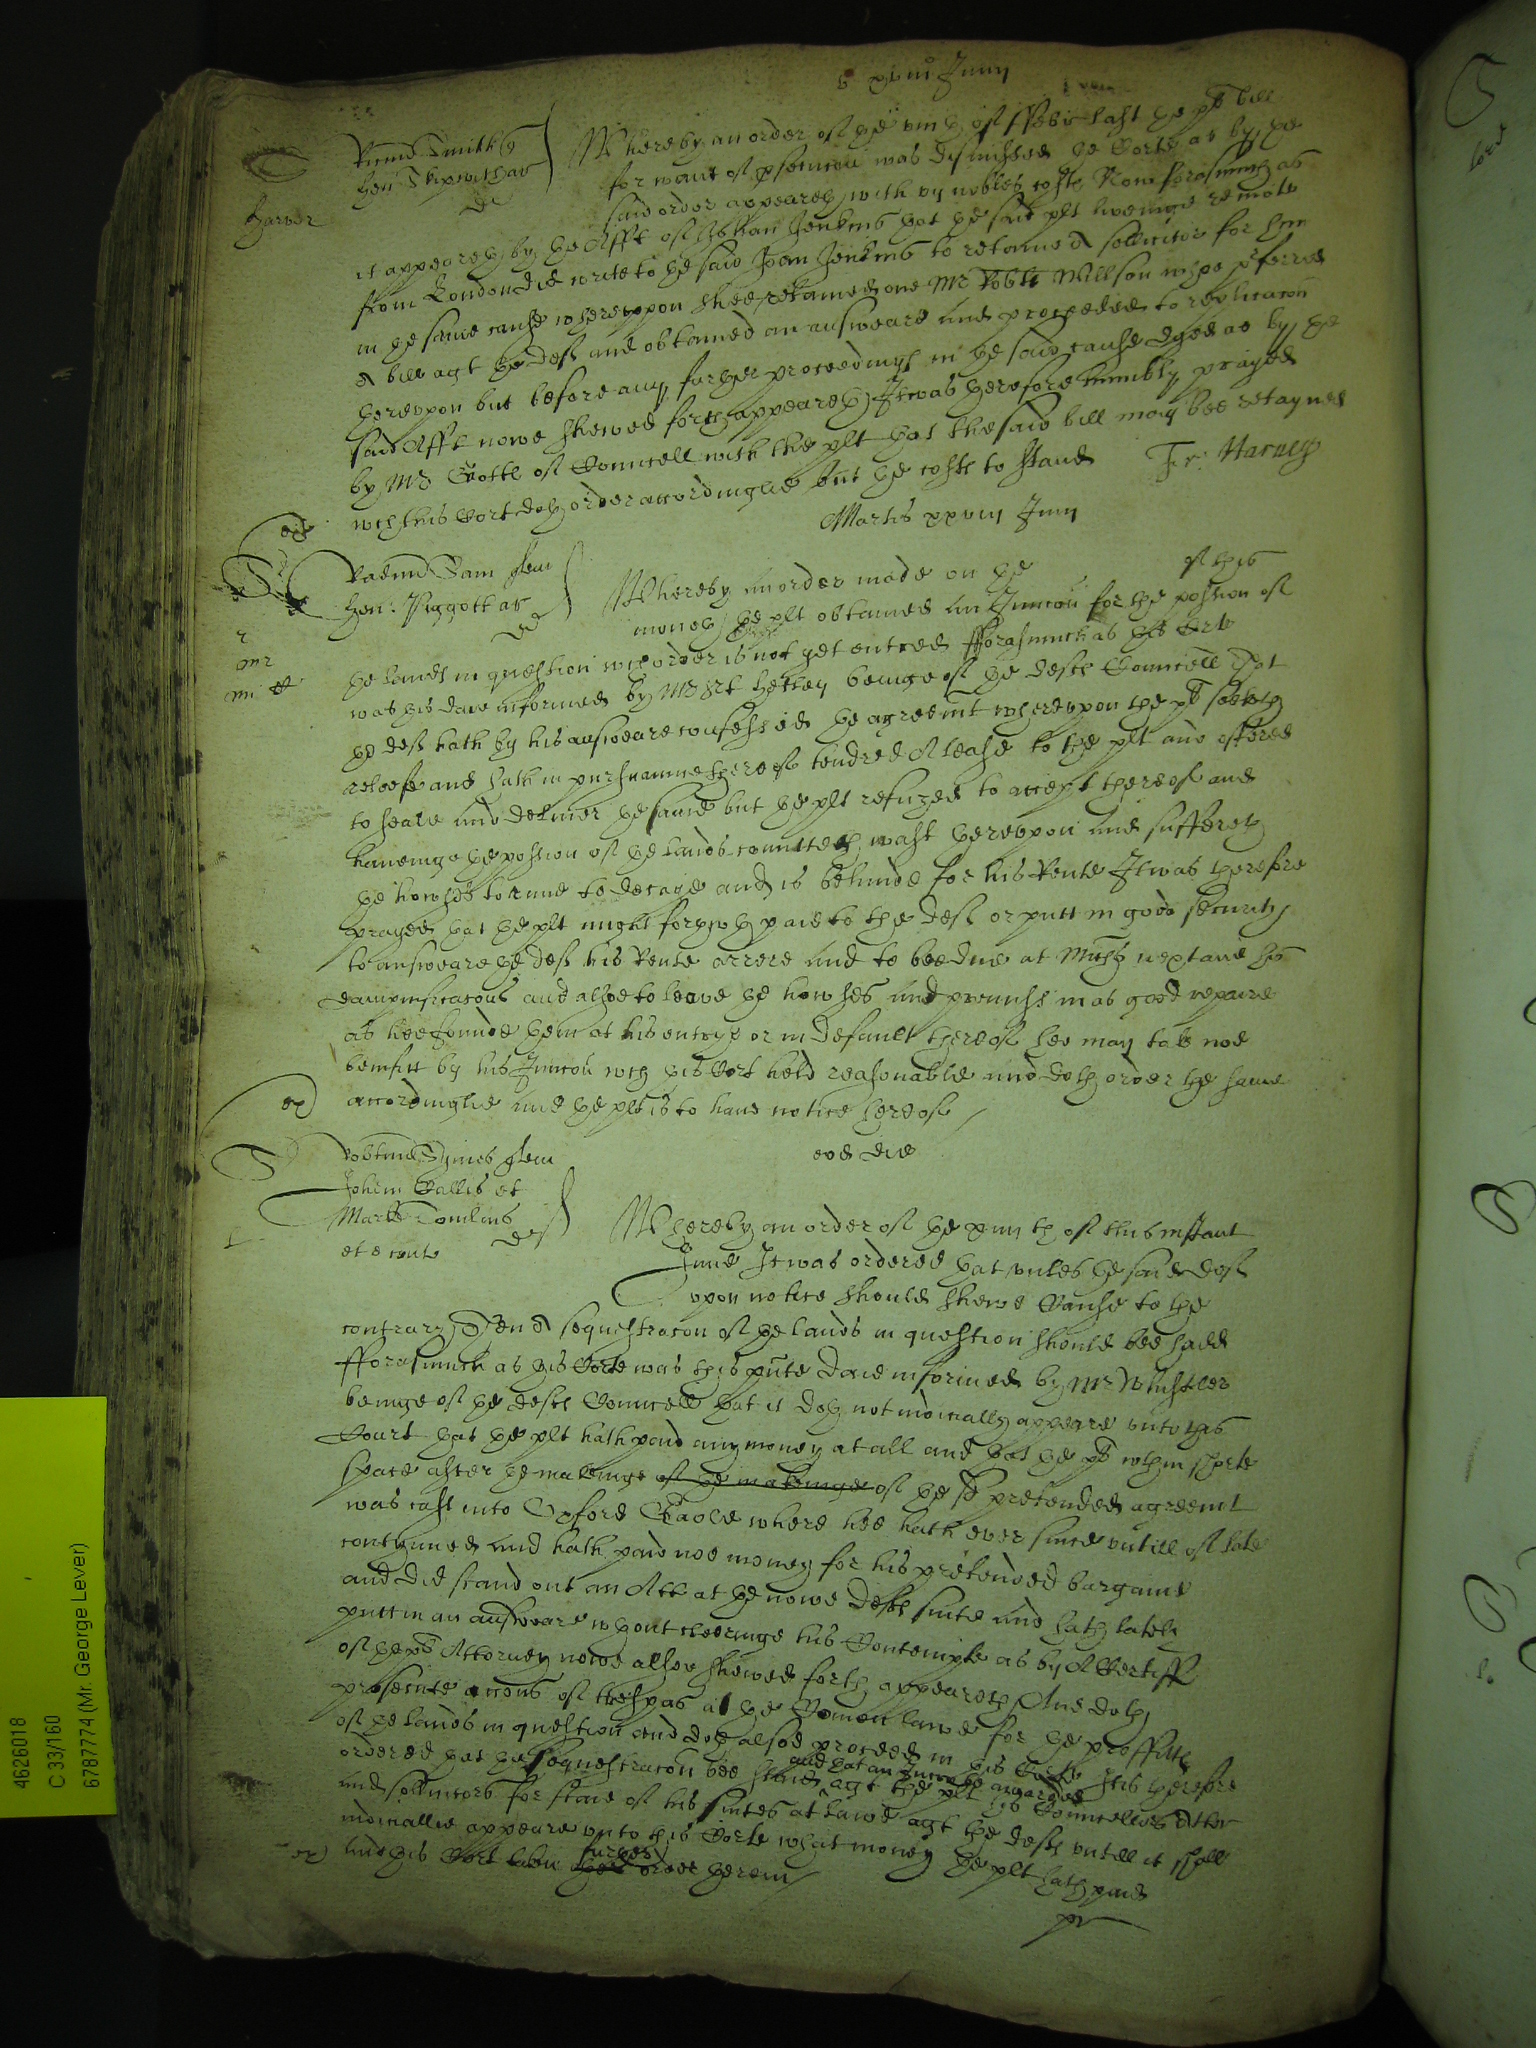 xxviii Junij
Ricūs Smith q
Hen: Skipwith ar
def
Harvey
Whereby an order of the viijth of Febr last the pts bill
for want of psecucon was dismissed the Corte as by the
said order appeareth with vij nobles costs Now forasmuch as
it appeareth by the Afft of Joan Jenkins that the said plt liveinge remote
from London did write to the said Joan Jenkins to retaine A sollicitor for him
in the same cause whereuppon shee retained one Mr Robte Willson whoe pferred
A bill agt the def and obtained an answeare and proceeded to replicacon
thereupon but before any further proceedings in the said cause dyed as by the
said Afft nowe shewed forth appeareth It was therefore humbly prayed
by Mr of Councell with the plt that the said bill may bee retayned
wch this Cort doth order accordinglie but the costs to stand
Fr: Harvey
Martis xxviij Junij
Sam quer
Hen: Piggott ar
def
Whereby an order made on the of this
moneth the plt obtained an Juncon for the possion of
the lands in question wch order is not yet entred Fforasmuch as this Corte
was this daie informed by Mr Hetley beinge of the defts Councell that
the def hath by his answeare confessed the agreemt whereuppon the pt seeketh
releefe and hath in pursuannce thereof tendred A lease to the plt and offered
to seale and deliver the same but the plt refused to accept thereof and
haveinge the possion of the lands comitteth wast thereuppon and suffereth
the howses to runne to decaye and is behinde for his Rente It was therefore
prayed that the plt might forthwth paie to the def or putt in good security
to answeare the def his Rente arrere and to bee due at Michs next and his
dampnificacons and alsoe to leave the howses and premisss in as good repaire
as hee founde them at his entrye or in default thereof hee may take noe
benefitt by his Juncon wch this Cort held reasonable and doth order the same
accordinglie and the plt is to have notice hereof
eod die
Robtus Symes quer
Johem Wallis et
Marke Tomlins
et e cont def
Whereby an order of the xviijth of this instant
June It was ordered that unles the said def
upon notice should shewe Cause to the
contrary Then A sequestracon of the lands in question should bee hadd
Fforasmuch as this Corte was this pnte daie informed by Mr Whistler
beinge of the defts Councell that it doth not iudicially appeare unto this
Court that the plt hath paid any money at all and that the pt wthin shorte
space after the makinge of the makinge of the sd pretended agreemt
was cast into Oxford Gaole where hee hath ever since untill of late
contynued and hath paid noe money for his pretended bargaine
and did stand out an Att at the nowe defts suite and hath lately
putt in an answeare wthout cleeringe his Contempte as by A Certiff
of the pts Attorney nowe alsoe shewed forth appeareth And doth
prosecute accons of trespas at the Comon lawe for the proffitts
of the lands in question and doth alsoe proceed in this Corte It is therefore
ordered that the sequestracon bee staied and that an Juncon bee awarded agt the plt his Councellors Attor
and sollicitors for staie of his suites at lawe agt the defts untill it shall
iudiciallie appeare unto this Corte what money the plt hath paid
and this Cort take further order therein
4626018
C 33/160
6787774 (Mr. George Lever)